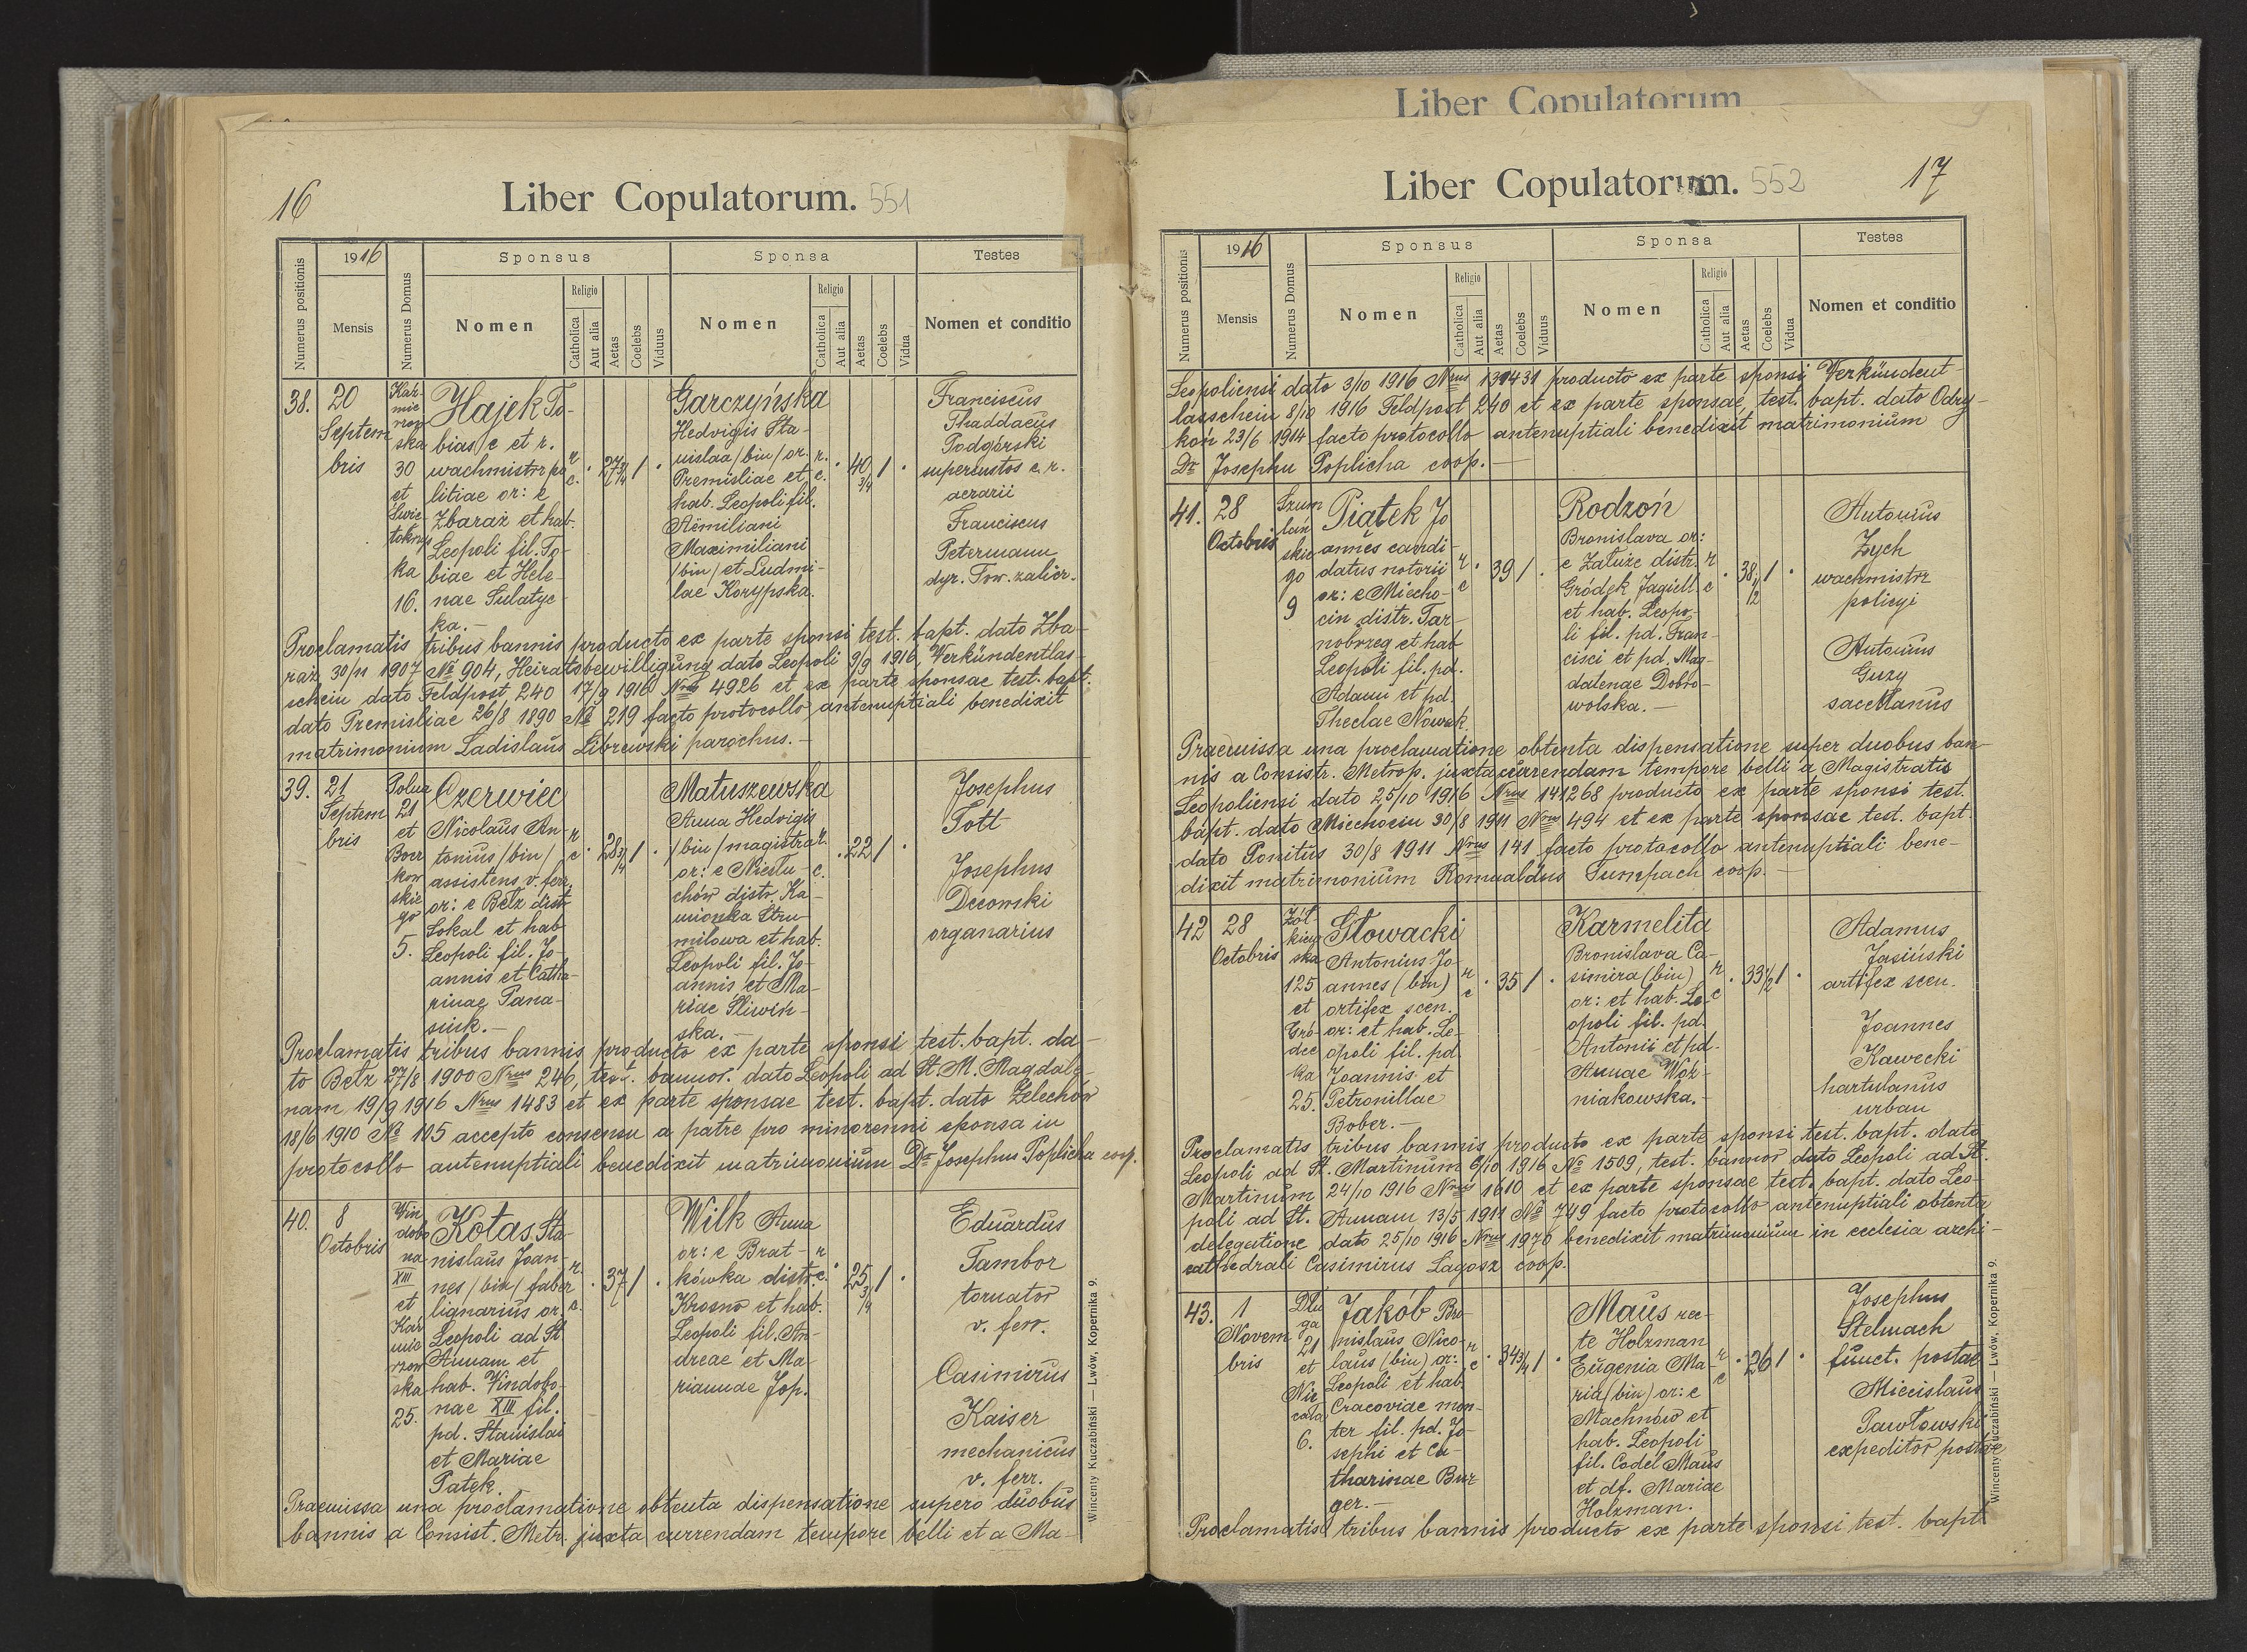 Liber Copulatorum
16
Liber Copulatorum. 551
Numerus positionis
1916
Mensis
Numerus Domus
Sponsus
Nomen
Religio
Catholica
Aut alia
Aetas
Coelebs
Viduus
Sponsa
Nomen
Religio
Catholica
Aut alia
Aetas
Coelebs
Vidua
Testes
Nomen et conditio
38.
20
Septem
bris
Kaź-
mie
rzow
ska
30
et
Świę-
tokrzys
ka
16.
Hajek To-
bias/c et r.
wachmistrz po
litiae or: e
Zbaraż et hab.
Leopoli fil. To-
biae et Hele-
nae Sulatyc
ka.-
r.
c.
27 3/4
1
Garczyńska
Hedvigis Sta-
nislaa/bin/or.
Premisliae et
hab. Leopoli fil.
Aëmiliani
Maximiliani
/bin/ et Ludmi-
lae Korypska.
r.
c.
40 3/4
1
Franciscus
Thaddaeus
Podgórski
supercustos c. r.
aerarii
Franciscus
Petermann
dyr. Tow. zalicz.
Proclamatis tribus bannis producto ex parte sponsi test. bapt. dato Zba-
raż 30/11 1907 No 904, Heiratsbewilligung dato Leopoli 9/9 1916, Verkündentlas-
schein dato Feldpost 240 17/9 1916 Nrus 4926 et ex parte sponsae test. bapt.
dato Premisliae 26/8 1890 No 219 facto protocollo antenuptiali benedixit
matrimonium Ladislaus Librewski parochus.-
39.
21
Septem
bris
Polna
21
et
Boer
kow
skie
go
5.
Czerwiec
Nicolaus An-
tonius/bin/
assistens v. ferr.
or: e Bełz distr
Sokal et hab
Leopoli fil. Jo-
annis et Catha-
rinae Pana-
siuk.-
r
c
28 3/4
1
Matuszewska
Anna Hedvigis
/bin/magistra
or: e Niestu-
chów distr. Ka-
mionka Stru-
milowa et hab.
Leopoli fil. Jo-
annis et Ma-
riae Śliwiń-
ska.-
r.
c.
22
1
Josephus
Tott
Josephus
Decowski
organarius
Proclamatis tribus bannis producto ex parte sponsi test. bapt. da-
to Bełz 27/8 1900 Nrus 246, test. bannor. dato Leopoli ad St. M. Magdale-
nam 19/9 1916 Nrus 1483 et ex parte sponsae test. bapt. dato Żelechów
18/6 1910 No 105 accepto consensu a patre pro minorenni sponsa in
protocollo antenuptiali benedixit matrimonium Dr Josephus Poplicha coop.
40.
8
Octobris
Vin
dobo
na
XIII
et
Kaź
mie
rzow
ska
25.
Kotas Sta-
nislaus Joan-
nes/bin/faber
lignarius or.
Leopoli ad St.
Annam et
hab. Vindobo-
nae XIII fil.
pd. Stanislai
et Mariae
Patek.
r.
c.
37
1
Wilk Anna
or: e Brat-
kówka distr.
Krosno et hab.
Leopoli fil. An-
dreae et Ma-
riannae Jop.
r
c.
25 3/4
1
Eduardus
Tambor
tornator
v. ferr.
Casimirus
Kaiser
mechanicus
v. ferr.
Praemissa una proclamatione obtenta dispensatione supero duobus
bannis a Consist. Metr. juxta currendam tempore belli et a Ma-
Wincenty Kuczabiński — Lwów, Kopernika 9.
Liber Copulatorum. 552
17
Numerus positionis
1916
Mensis
Numerus Domus
Sponsus
Nomen
Religio
Catholica
Aut alia
Aetas
Coelebs
Viduus
Sponsa
Nomen
Religio
Catholica
Aut alia
Aetas
Coelebs
Vidua
Testes
Nomen et conditio
Leopoliensi dato 3/10 1916 Nrus 131431 producto ex parte sponsi Verkündent-
lasschein 8/10 1916 Feldpost 240 et ex parte sponsae test. bapt. dato Odry-
koń 23/6 1914 facto protocollo antenuptiali benedixit matrimonium
Dr Josephu Poplicha coop.-
41.
28
Octobris
Szum
lań
skie
go
9
Piątek Jo
annes candi-
datus notorii
or: e Miecho-
cin distr. Tar-
nobrzeg et hab
Leopoli fil. pd.
Adami et pd
Theclae Nowak
r
c
39
1
Rodzoń
Bronislava or:
e Załuże distr.
Gródek Jagiell.
et hab. Leopo-
li fil. pd. Fran-
cisci et pd. Mag-
dalenae Dobro-
wolska.-
r
c
38 1/2
1
Antonius
Zych
wachmistrz
policyi
Antonius
Guzy
sacellanus
Praemissa una proclamatione obtenta dispensatione super duobus ban-
nis a Consistr. Metrop. juxta currendam tempore belli a Magistratis
Leopoliensi dato 25/10 1916 Nrus 141268 producto ex parte sponsi test.
bapt. dato Miechocin 30/8 1911 Nrus 494 et ex parte sponsae test. bapt.
dato Ponitus 30/8 1911 Nrus 141 facto protocollo antenuptiali bene-
dixit matrimonium Romualdus Sumpach coop.-
42
28
Octobris
Żół
kiew
ska
125
et
Gró-
dec
ka
25.
Słowacki
Antonius Jo-
annes (bin)
ortifex scen.
or: et hab. Le-
opoli fil. pd.
Joannis et
Petronillae
Bober.-
r
c
35
1
Karmelita
Bronislava Ca-
simira (bin)
or: et hab. Le-
opoli fil. pd.
Antonii et pd.
Annae Woź-
niakowska.-
r
c
33 1/2
1
Adamus
Jasiński
artifex scen.
Joannes
Kawecki
hartulanus
urban
Proclamatis tribus bannis producto ex parte sponsi test. bapt. dato
Leopoli ad St. Martinum 6/10 1916 No 1509, test. bannor dato Leopoli ad St.
Martinum 24/10 1916 Nrus 1610 et ex parte sponsae test. bapt. dato Leo-
poli ad St. Annam 13/5 1911 No 749 facto protocollo antenuptiali obtenta
delegatione dato 25/10 1916 Nrus 1976 benedixit matrimonium in ecclesia archi-
cathedrali Casimirus Lagosz coop.
43.
1
Novem
bris
Dłu
ga
21
et
Nie
cała
6.
Jakób Bro-
nislaus Nico-
laus (bin) or:
Leopoli et hab.
Cracoviae mon-
ter fil. pd. Jo-
sephi et Ca-
tharinae Bur
ger.-
r
c
34 3/4
1
Maus rec-
te Holzman
Eugenia Ma-
ria(bin) or: e
Machnów et
hab. Leopoli
fil. Codel Maus
et df. Mariae
Holzman.
r
c
26
1
Josephus
Stelmach
funct. postae
Miecislaus
Pawłowski
expeditor postae
Proclamatis tribus bannis producto ex parte sponsi test. bapt
Wincenty Kuczabiński — Lwów, Kopernika 9.